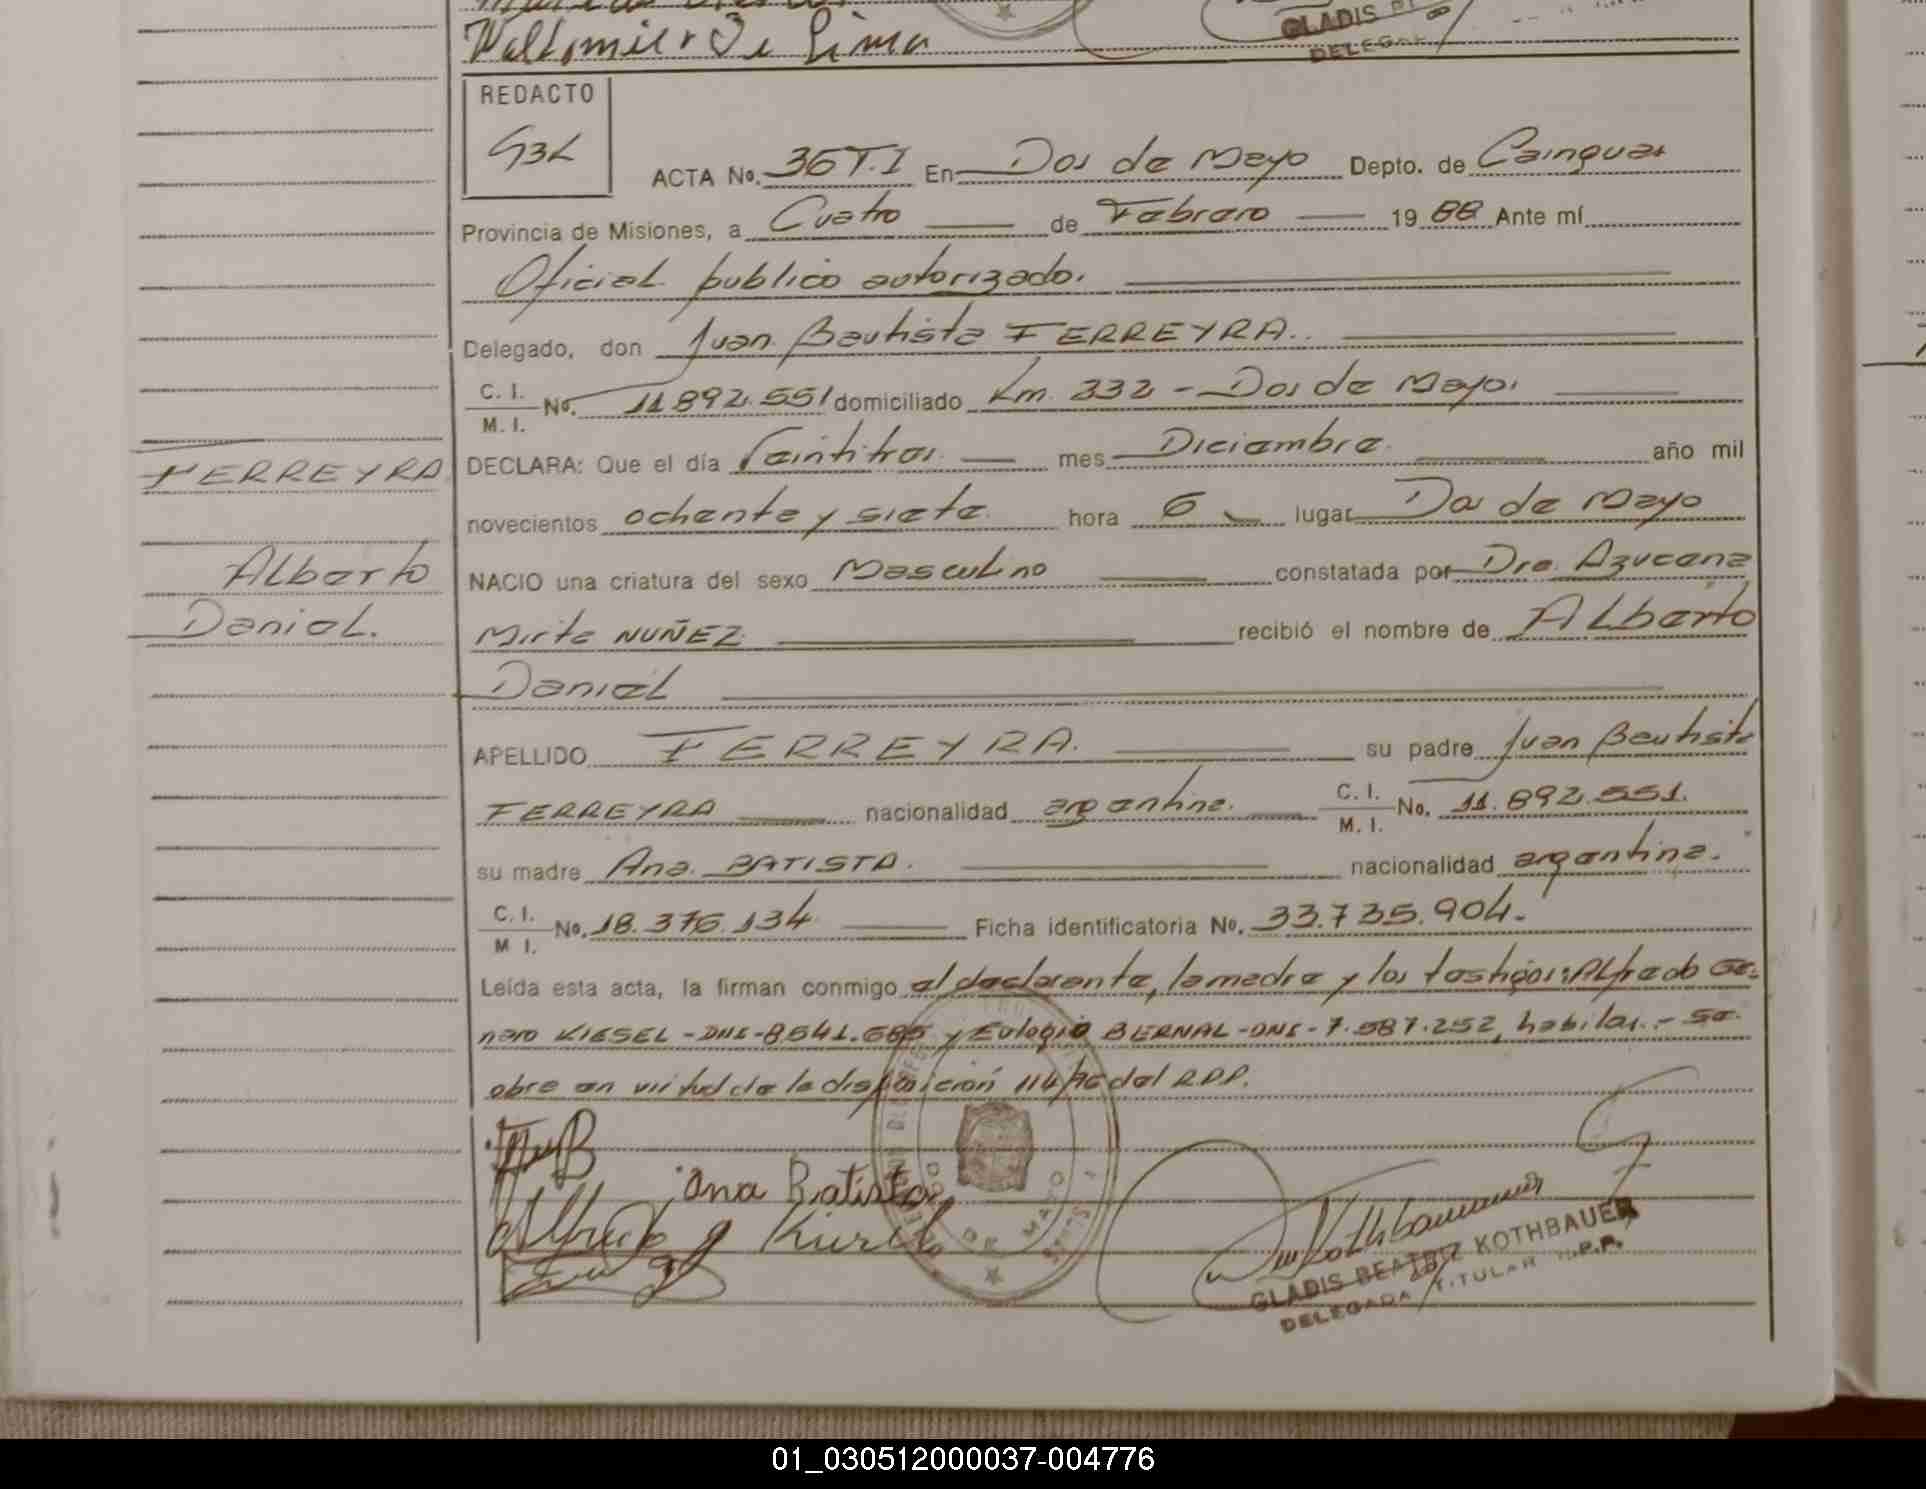 Waldomiro De Lima
GLADIS
DELEGA
REDACTO
G3L
ACTA No. 36 T.I En Dos de Mayo Depto. de Cainguas
Provincia de Misiones, a Cuatro de Febrero 1988 Ante mí
Oficial publico autorizado.
Delegado, don Juan Bautista FERREYRA.
C. I.
M. I. No. 11.892.551 domiciliado Km. 332 - Dos de Mayo.
FERREYRA
DECLARA: Que el día Veintitres mes Diciembre año mil
novecientos ochenta y siete hora 6 lugar Dos de Mayo
Alberto
Daniel.
NACIO una criatura del sexo Masculino constatada por Dra. Azucena
Mirta NUÑEZ recibió el nombre de Alberto
Daniel
APELLIDO FERREYRA. su padre Juan Bautista
FERREYRA nacionalidad argentina. C. I.
M. I. No. 11.892.551.
su madre Ana BATISTA. nacionalidad argentina.
C. I.
M I. No. 18.376.134 Ficha identificatoria No. 33.735.904.
Leída esta acta, la firman conmigo el declarante, la madre y los testigos: Alfredo Ge-
naro KIESEL - DNI - 8.541.685 y Eulogio BERNAL - DNI - 7.587.252, habiles. - Se
obra en virtud de la disposición 114/76 del R.P.P.
Ana Batista
Alfredo g Kiesel
DOS DE MAYO
GLADIS BEATRIZ KOTHBAUER
DELEGADA TITULAR R.P.P.
01_030512000037-004776